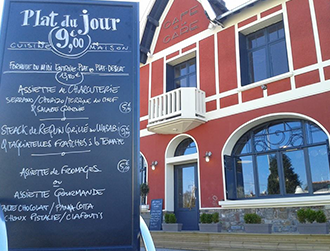 Plat du jour
9,00
CUISINE MAISON
FORMULE DU MIDI ENTRÉE-PLAT OU PLAT-DESSERT
ASSIETTE DE CHARCUTERIE
SERRANO / CHORIZO / TERRINE DU CHEF
& SALADE GRECQUE
STEAK DE REQUIN GRILLÉ AU WASABI
& TAGLIATELLES FRAÎCHES À LA TOMATE
ASSIETTE DE FROMAGES
OU
ASSIETTE GOURMANDE
CHOCOLAT / PANACOTTA
CHOUX PISTACHE / CLAFOUTIS